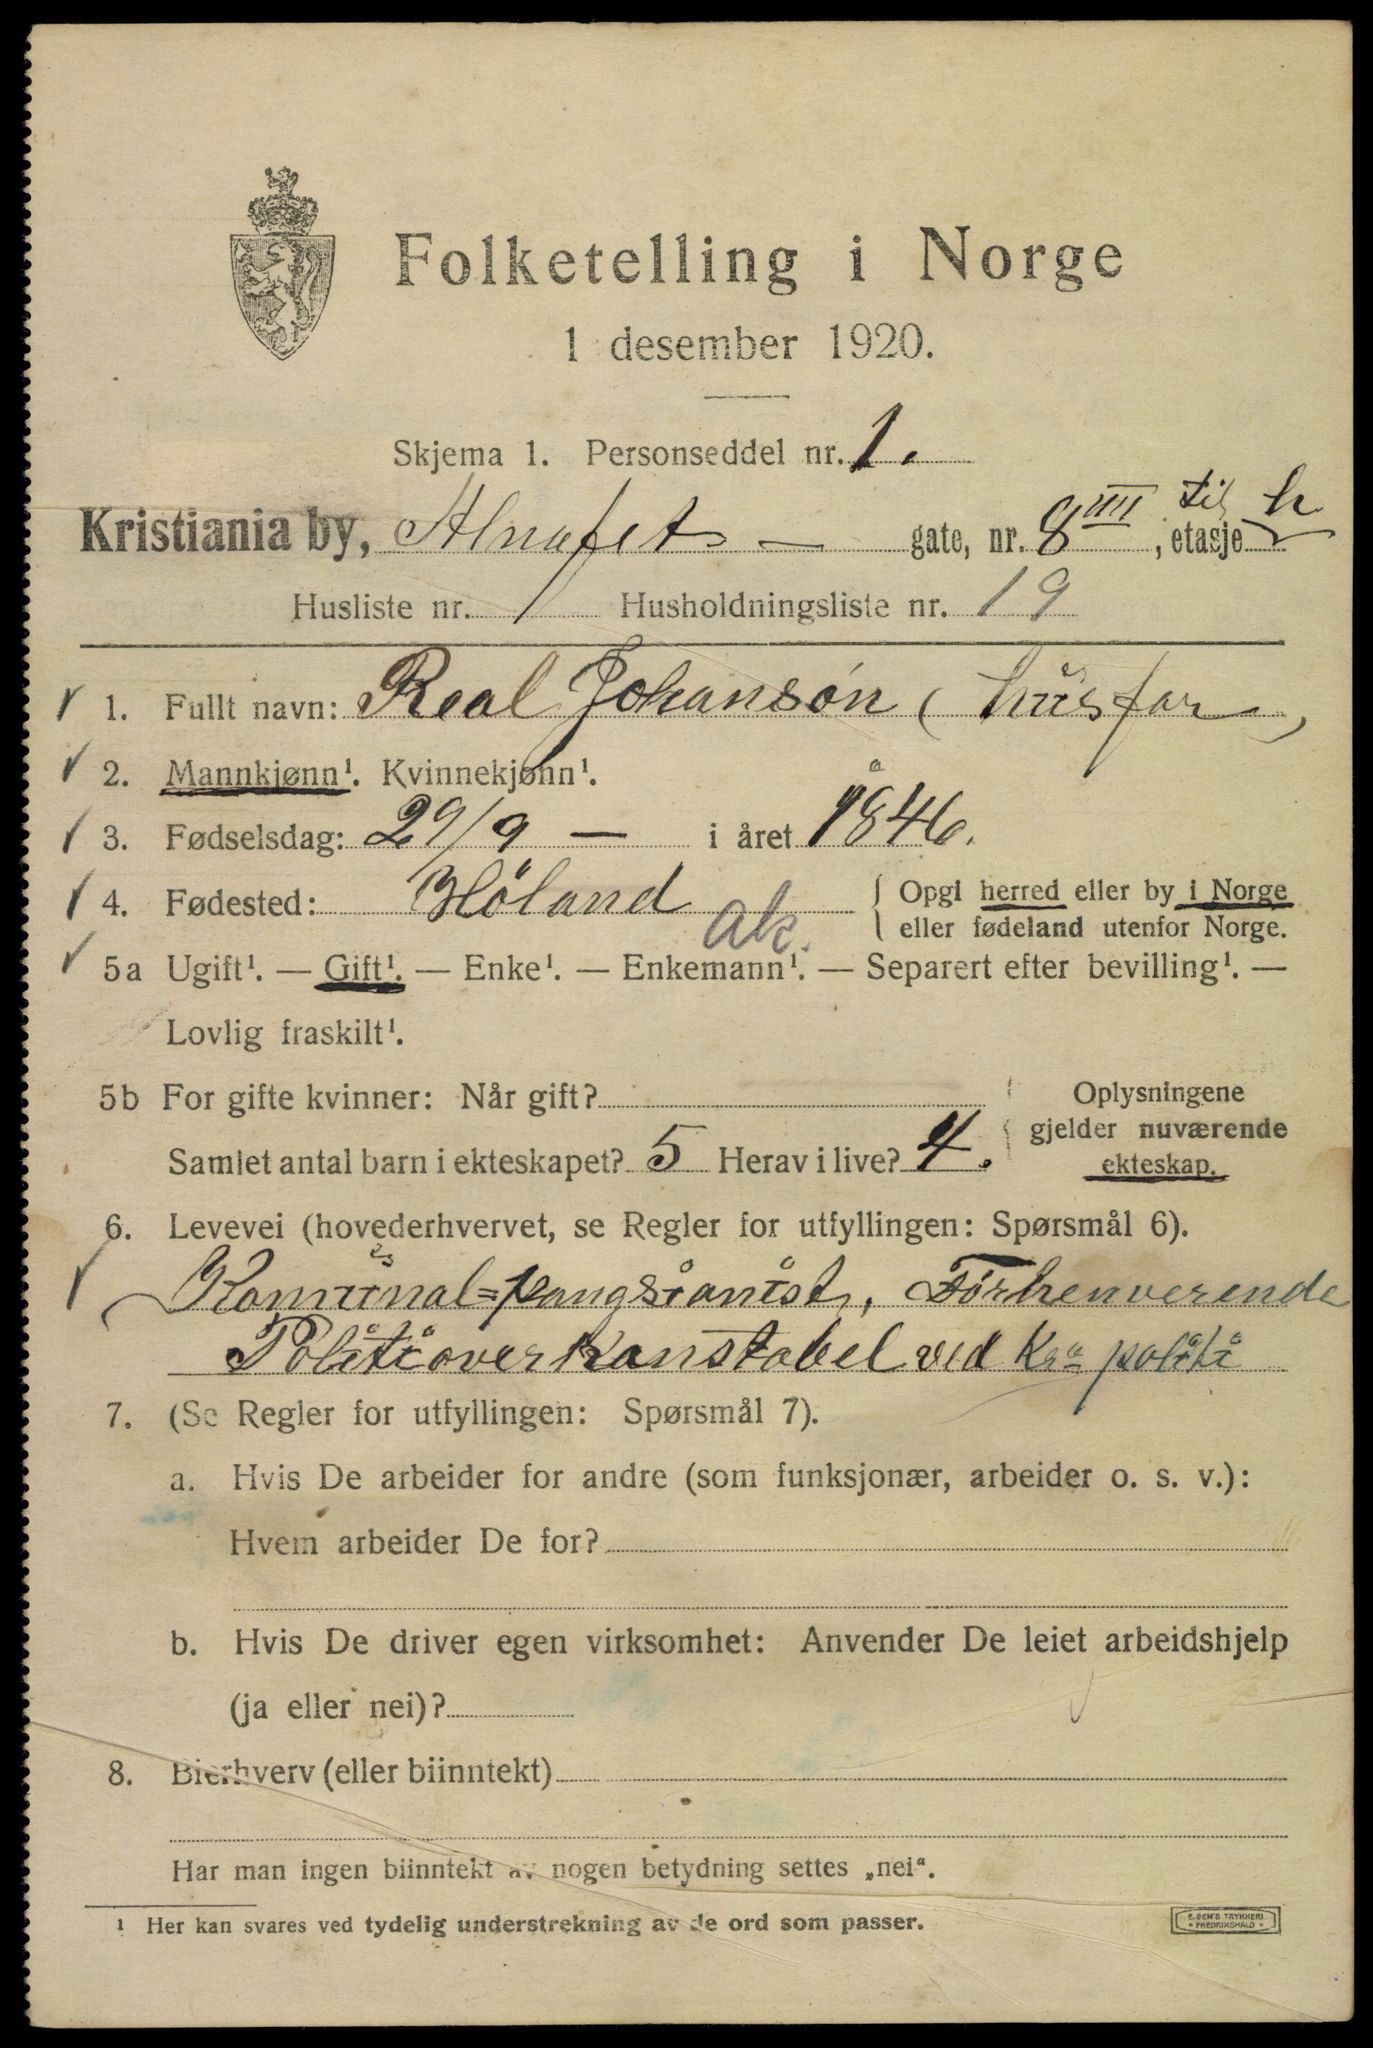 Folketelling i Norge
1 desember 1920.
Skjema 1. Personseddel nr. 1.
Kristiania by, Alnafet — gate, nr. 8 IIII, etasje til h
Husliste nr. 1 Husholdningsliste nr. 19
1. Fullt navn: Real Johansón (húsfar)
2. Mannkjønn¹. Kvinnekjønn¹.
3. Fødselsdag: 29/9 — i året 1846.
4. Fødested: Höland Ak. { Opgi herred eller by i Norge
{ eller fødeland utenfor Norge.
5a Ugift¹. — Gift¹. — Enke¹. — Enkemann¹. — Separert efter bevilling¹. —
Lovlig fraskilt¹.
5b For gifte kvinner: Når gift? { Oplysningene
Samlet antal barn i ekteskapet? 5 Herav i live? 4. { gjelder nuværende
ekteskap.
6. Levevei (hovederhvervet, se Regler for utfyllingen: Spørsmål 6).
Komunal=pangsianist, Førhenverende
Politioverkonstabel ved Kra politi
7. (Se Regler for utfyllingen: Spørsmål 7).
a. Hvis De arbeider for andre (som funksjonær, arbeider o. s. v.):
Hvem arbeider De for?
b. Hvis De driver egen virksomhet: Anvender De leiet arbeidshjelp
(ja eller nei)?
8. Bierhverv (eller biinntekt)
Har man ingen biinntekt av nogen betydning settes „nei“.
¹ Her kan svares ved tydelig understrekning av de ord som passer.
E. SEM'S TRYKKERI
FREDRIKSHALD